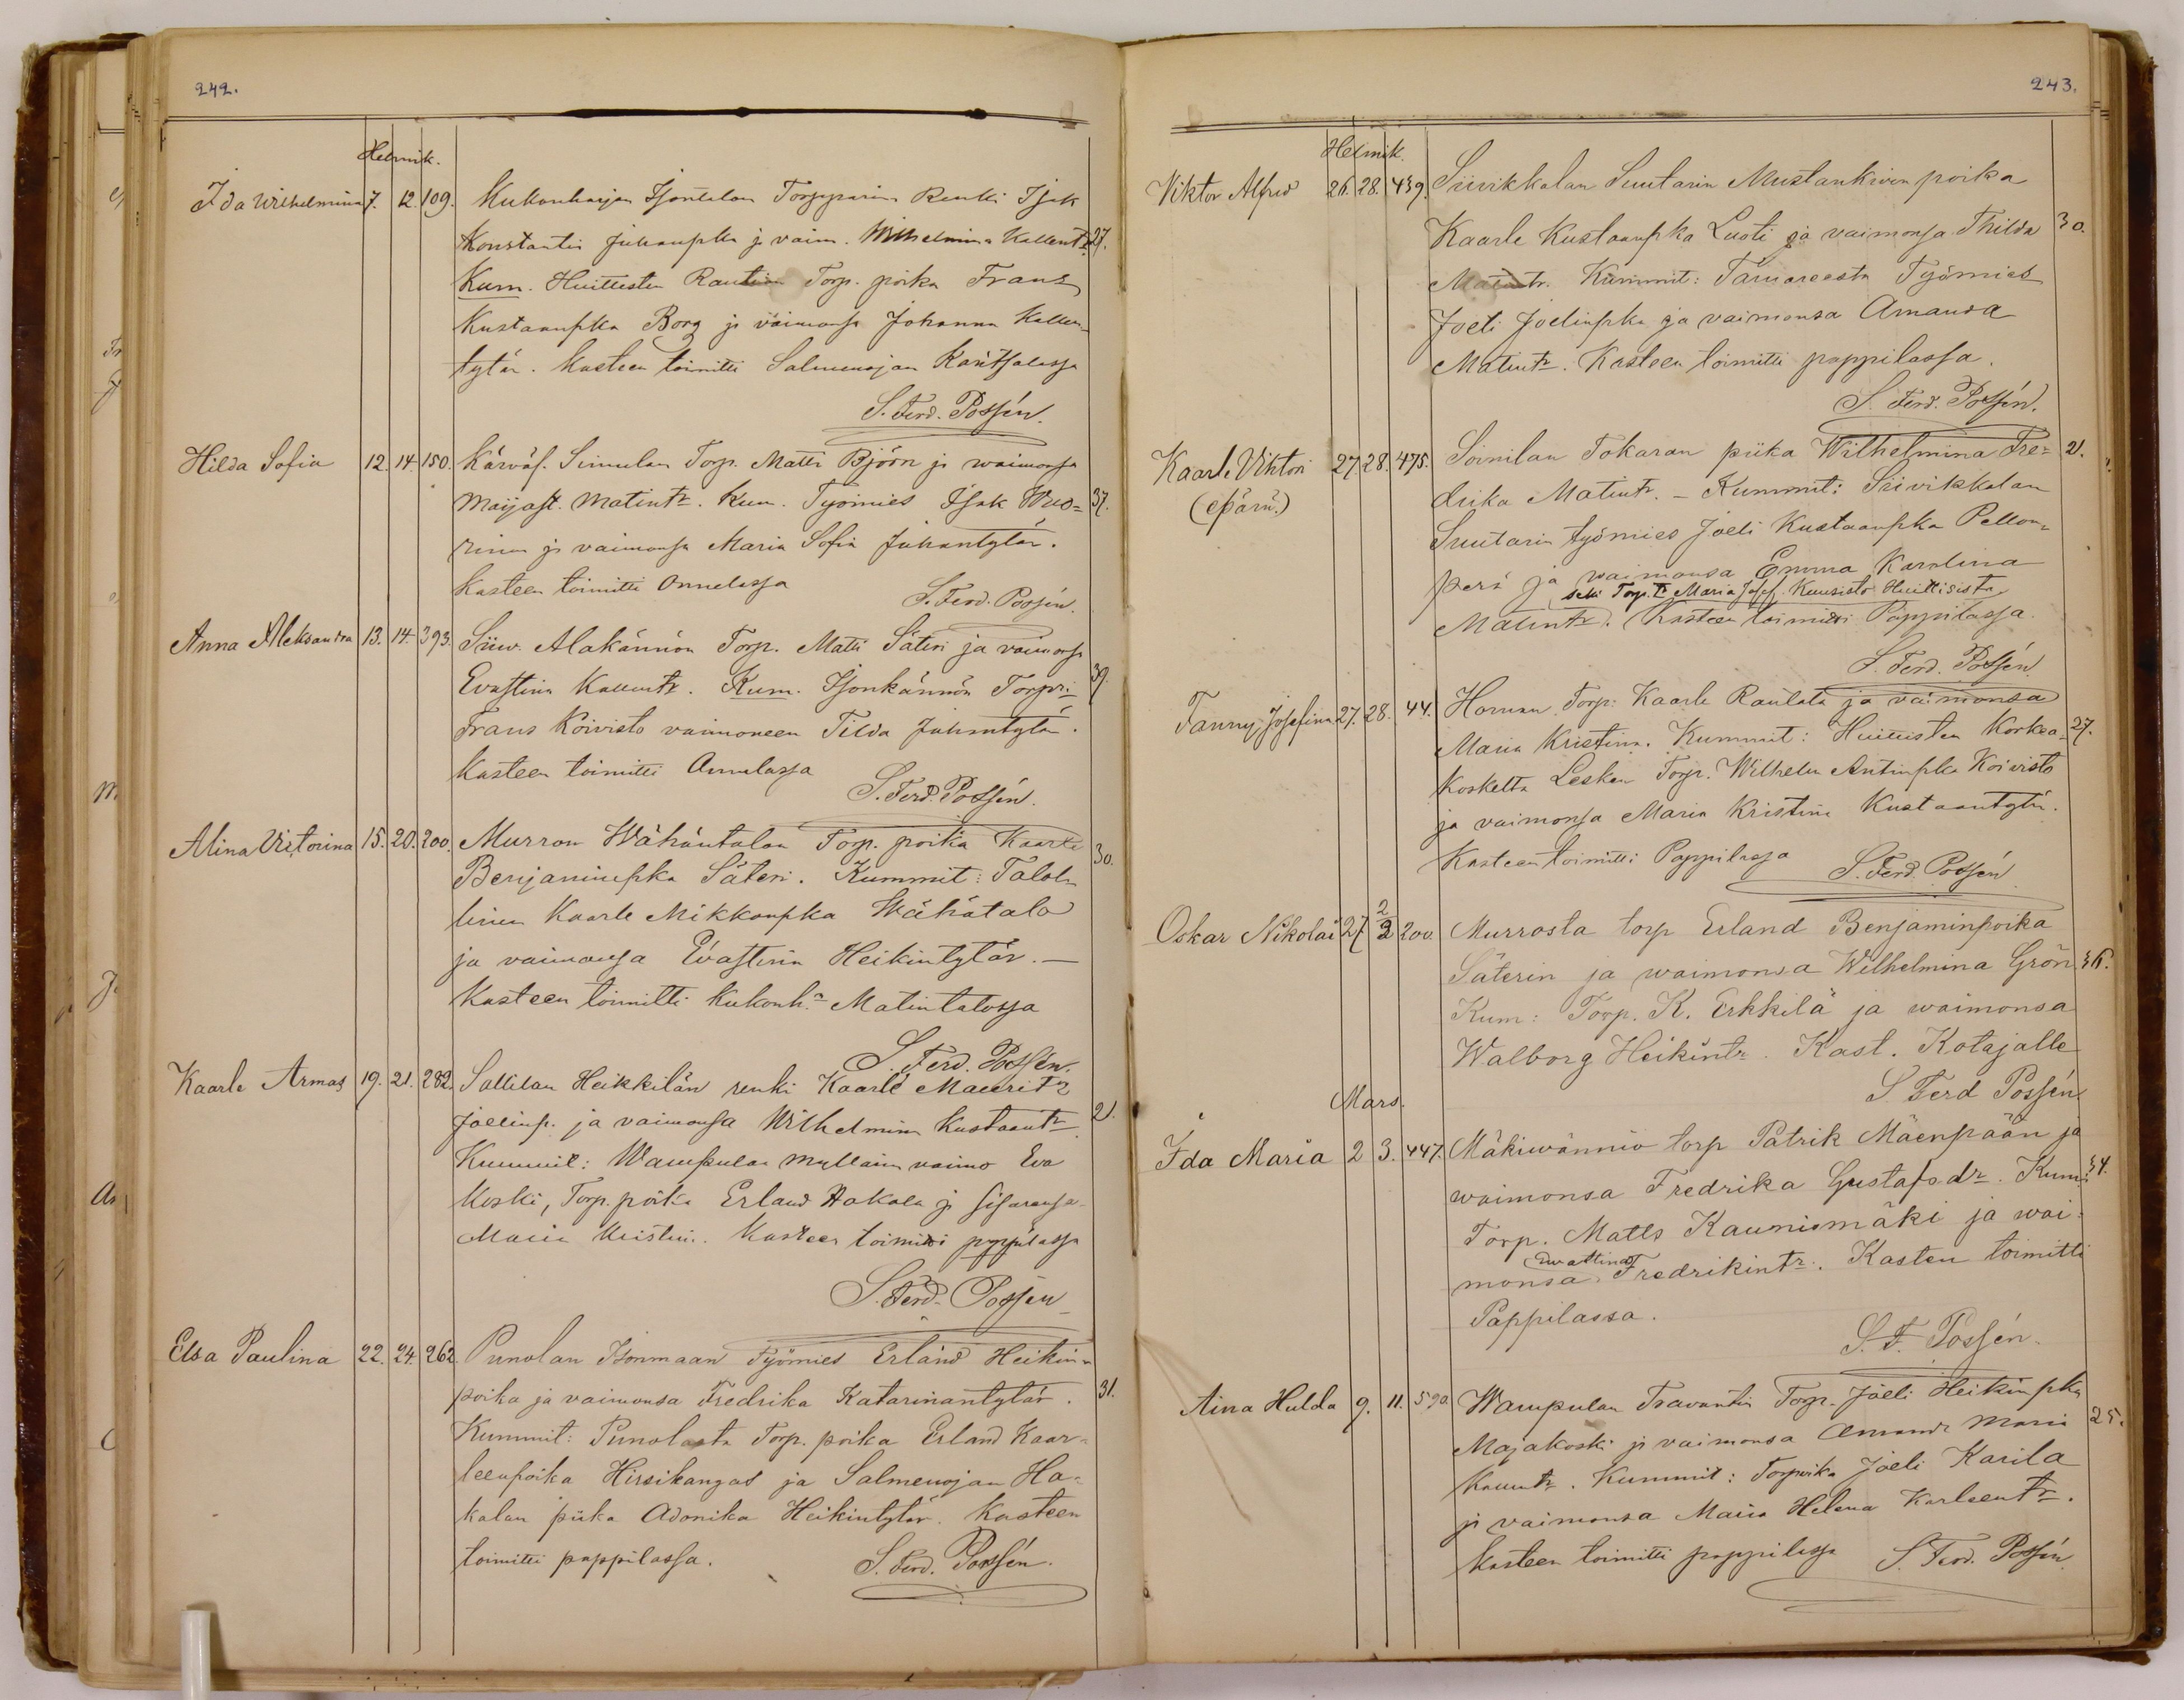 242.
Helmik.
Ida Wilhelmina 7. 12. 109. Kukonharjan Isontalon Torpparin Renki Isak
Konstantin Juhanpka ja vaim. Wilhelmina Kallentr. 27.
Kum. Huittisten Torp. poika Frans
Kustaanpka Borg ja vaimonsa Johanna Kallen-
tytär. Kasteen toimitti Salmenojan
S. Ferd. Possén.
Hilda Sofia 12. 14. 150. Torp. Matti Björn ja waimonsa
Maijast. Matintr. Kum. Työmies Isak Wuo- 37.
rinen ja vaimonsa Maria Sofia Juhantytär.
Kasteen toimitti Annalassa
S. Ferd. Possén.
Anna Aleksandra 13. 14. 393. Siiw. Alakännön Torp. Matti Säteri ja vaimonsa
Evastina Kallentr. Kum. Isonkännön Torpri 39.
Frans Koivisto vaimoneen Tilda Juhantytär.
Kasteen toimitti Annalassa
S. Ferd. Possén.
Alina Victorina 15. 20. 200. Murron Wähäntalon Torp. poika Kaarle
Benjaminpka Säteri. Kummit: Talol- 30.
linen Kaarle Mikkonpka Wähätalo
ja vaimonsa Evastina Heikintytär. —
Kasteen toimitti Kukonh. Matintalossa
S. Ferd. Possén.
Kaarle Armas 19. 21. 282. Sallilan Heikkilän renki Kaarle Mauritz
Joelinp. ja vaimonsa Wilhelmina Kustaantr. 21.
Kummit: Wampulan Myllärin vaimo Eva
Koski, Torp. poika Erland Hakala ja sisarensa
Maria Kristin. Kasteen toimitti pappilassa
S. Ferd. Possén
Elsa Paulina 22. 24. 262. Punolan Isonmaan Työmies Erland Heikin-
poika ja vaimonsa Fredrika Katarinantytär. 31.
Kummit: Punolasta Torp. poika Erland Kaar-
leenpoika Hirsikangas ja Salmenojan Ha-
kalan piika Adonika Heikintytär. Kasteen
toimitti pappilassa. S. Ferd. Possén.
243.
Helmik.
Viktor Alfred 26. 28. 439. Siivikkalan Suutarin Mustankiven poika
Kaarle Kustaanpka Luoti ja vaimonsa Thilda 30.
Matintr. Kummit: Työmies
Joeli Joelinpka ja vaimonsa Amanda
Matintr. Kasteen toimitti pappilassa.
S. Ferd. Possén.
Kaarle Viktori 27 28. 475. Soinilan Tokaran piika Wilhelmina Fre- 21.
(epärn.) drika Matintr. — Kummit: Siivikkalan
Suutarin työmies Joeli Kustaanpka Pellon-
perä ja waimonsa Emma Karolina
sekä Torp. Tr Maria Josef. Kuusisto Huittisista
Matintr. Kasteen toimitti Pappilassa.
S. Ferd. Possén
Fanny Josefina 27. 28. 44. Torp. Kaarle Raulata ja vaimonsa
Maria Kristina. Kummit: Huittisten Korkea- 27.
koskelta Lesken Torp. Wilhelm Antinpka Koivisto
ja vaimonsa Maria Kristina Kustaantytär.
Kasteen toimitti Pappilassa S. Ferd. Possén
Oskar Nikolai 27 2/3 200 Murrosta torp Erland Benjaminpoika
Säterin ja waimonsa Wilhelmina Grön. 36.
Kum: Torp. K. Erkkilä ja waimonsa
Walborg Heikintr. Kast. Kotajalle
S. Ferd Possén
Mars.
Ida Maria 2 3. 447. Mäkiwännio torp Patrik Mäenpään ja
waimonsa Fredrika Gustafsdr. Kum: 34.
Torp. Matts Kaunismäki ja wai-
Ewastina
monsa Fredrikintr. Kasten toimitti
Pappilassa.
S. F. Possén.
Aina Hulda 9. 11. 590. Wampulan Travantin Torp. Joeli Heikinpka
Majakoski ja vaimonsa Amanda Maria 25.
Kummit: Torpoika Joeli Karila
ja vaimonsa Maria Helena Karleentr.
Kasteen toimitti pappilassa S. Ferd. Possén